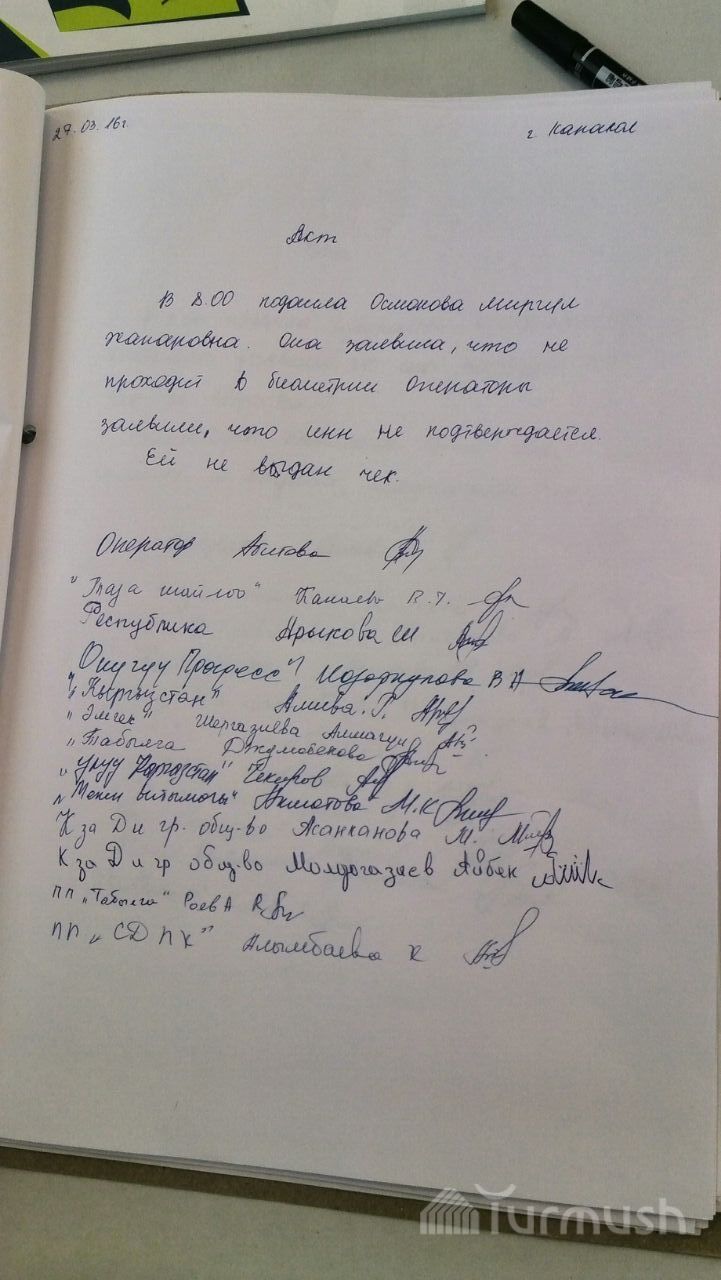 27.03.16г.
г. Каракол
Акт
В 8.00 подошла Осмонова Миргул
Жапаровна. Она заявила, что не
проходит в биометрии операторы
заявили, что инн не подтверждается.
Ей не выдан чек.
Оператор Абитова
"Таза шайлоо" Канаева В.
Республика Арыкова Ш
"Онугуу Прогресс" В А
"Кыргызстан" Алиева. Г.
"Эмгек" Шергазиева Алмагул
"Табылга Джумабекова
"Улуу Кыргызстан" Чекиров
"Мекен Ынтымагы" Акматова М.К
К за Д и гр. общ-во Жанканова М.
К за Д и гр общ-во Молдогазиев Айбек
ПП "Табылга" Роев А
ПП "СДПК" Алымбаева К
Turmush